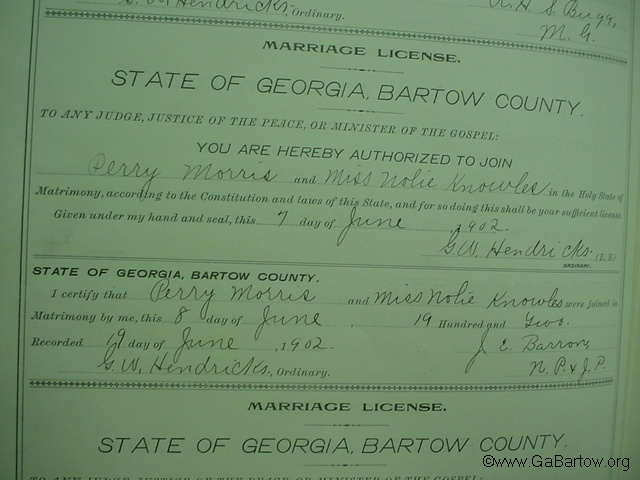 G. W. Hendricks. Ordinary.
A. H. S. Bugg,
M. G.
MARRIAGE LICENSE.
STATE OF GEORGIA, BARTOW COUNTY.
TO ANY JUDGE, JUSTICE OF THE PEACE, OR MINISTER OF THE GOSPEL:
YOU ARE HEREBY AUTHORIZED TO JOIN
Perry Morris and Miss Nolie Knowles in the Holy State of
Matrimony, according to the Constitution and laws of this State, and for so doing this shall be your sufficient license.
Given under my hand and seal, this 7 day of June , 1902.
G. W. Hendricks. (L. S.)
ORDINARY.
STATE OF GEORGIA, BARTOW COUNTY.
I certify that Perry Morris and Miss Nolie Knowles were joined in
Matrimony by me, this 8 day of June , 19 Hundred and Two.
Recorded 19 day of June , 1902. J. E. Barron,
G. W. Hendricks, Ordinary. N. P. & J. P.
MARRIAGE LICENSE.
STATE OF GEORGIA, BARTOW COUNTY.
TO ANY JUDGE, JUSTICE OF THE PEACE, OR MINISTER OF THE GOSPEL:
©www.GaBartow.org